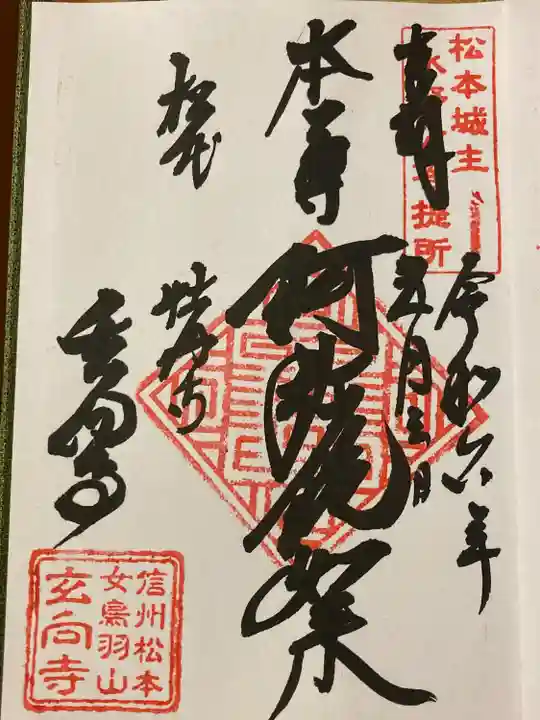 松本城主
奉拝
令和六年
五月三日
本尊
阿弥陀如来
松本
牡丹寺
玄向寺
信州松本
女鳥羽山
玄向寺